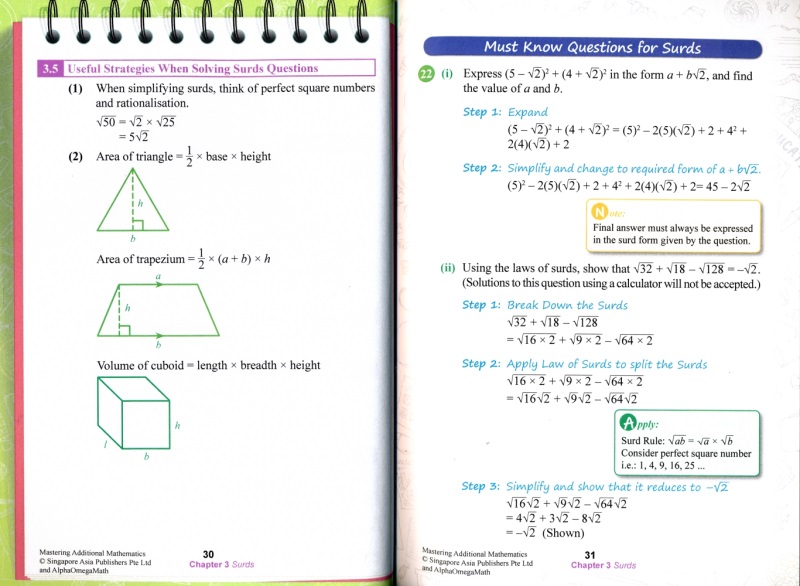 3.5 Useful Strategies When Solving Surds Questions
(1) When simplifying surds, think of perfect square numbers
and rationalisation.
√50 = √2 × √25
= 5√2
(2) Area of triangle = 1/2 × base × height
h
b
Area of trapezium = 1/2 × (a + b) × h
a
h
b
Volume of cuboid = length × breadth × height
h
l
b
Mastering Additional Mathematics
© Singapore Asia Publishers Pte Ltd
and AlphaOmegaMath
30
Chapter 3 Surds
Must Know Questions for Surds
22 (i) Express (5 − √2)² + (4 + √2)² in the form a + b√2, and find
the value of a and b.
Step 1: Expand
(5 − √2)² + (4 + √2)² = (5)² − 2(5)(√2) + 2 + 4² +
2(4)(√2) + 2
Step 2: Simplify and change to required form of a + b√2.
(5)² − 2(5)(√2) + 2 + 4² + 2(4)(√2) + 2= 45 − 2√2
Note:
Final answer must always be expressed
in the surd form given by the question.
(ii) Using the laws of surds, show that √32 + √18 − √128 = −√2.
(Solutions to this question using a calculator will not be accepted.)
Step 1: Break Down the Surds
√32 + √18 − √128
= √16 × 2 + √9 × 2 − √64 × 2
Step 2: Apply Law of Surds to split the Surds
√16 × 2 + √9 × 2 − √64 × 2
= √16√2 + √9√2 − √64√2
Apply:
Surd Rule: √ab = √a × √b
Consider perfect square number
i.e.: 1, 4, 9, 16, 25 ...
Step 3: Simplify and show that it reduces to −√2
√16√2 + √9√2 − √64√2
= 4√2 + 3√2 − 8√2
= −√2 (Shown)
Mastering Additional Mathematics
© Singapore Asia Publishers Pte Ltd
and AlphaOmegaMath
31
Chapter 3 Surds